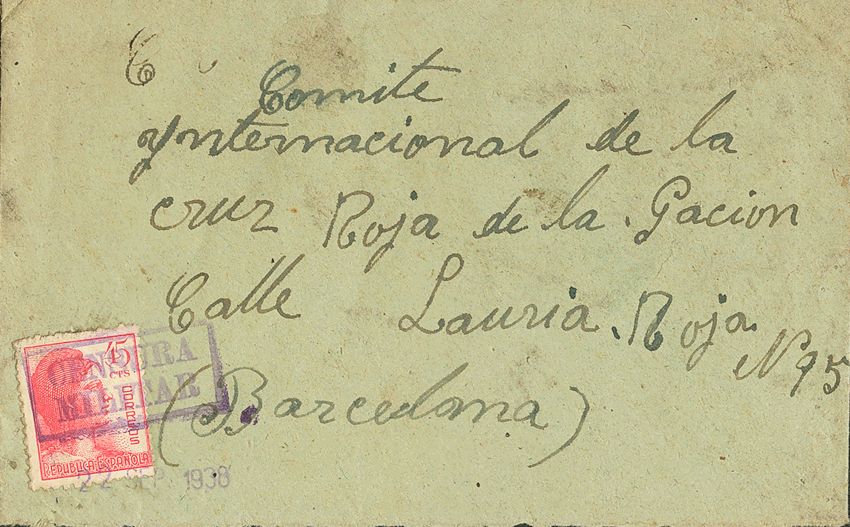 Comite
Ynternacional de la
cruz Roja de la Gacion
Calle Lauria. Roja.
Nº 95
(Barcelona)
45
CTS
CORREOS
REPUBLICA ESPAÑOLA
CENSURA
MILITAR
22 SEP. 1938